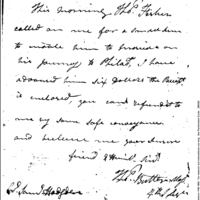 This morning Tho.s Fisher
called on me for a
to enable him to proceed on
his journey to Philad.a, I have
advanced him six Dollars the Receipt
is enclosed you can refund it to
me by some safe conveyance
and believe me your sincere
friend & Humb.l Serv.t
Tho.s Butler Maj.